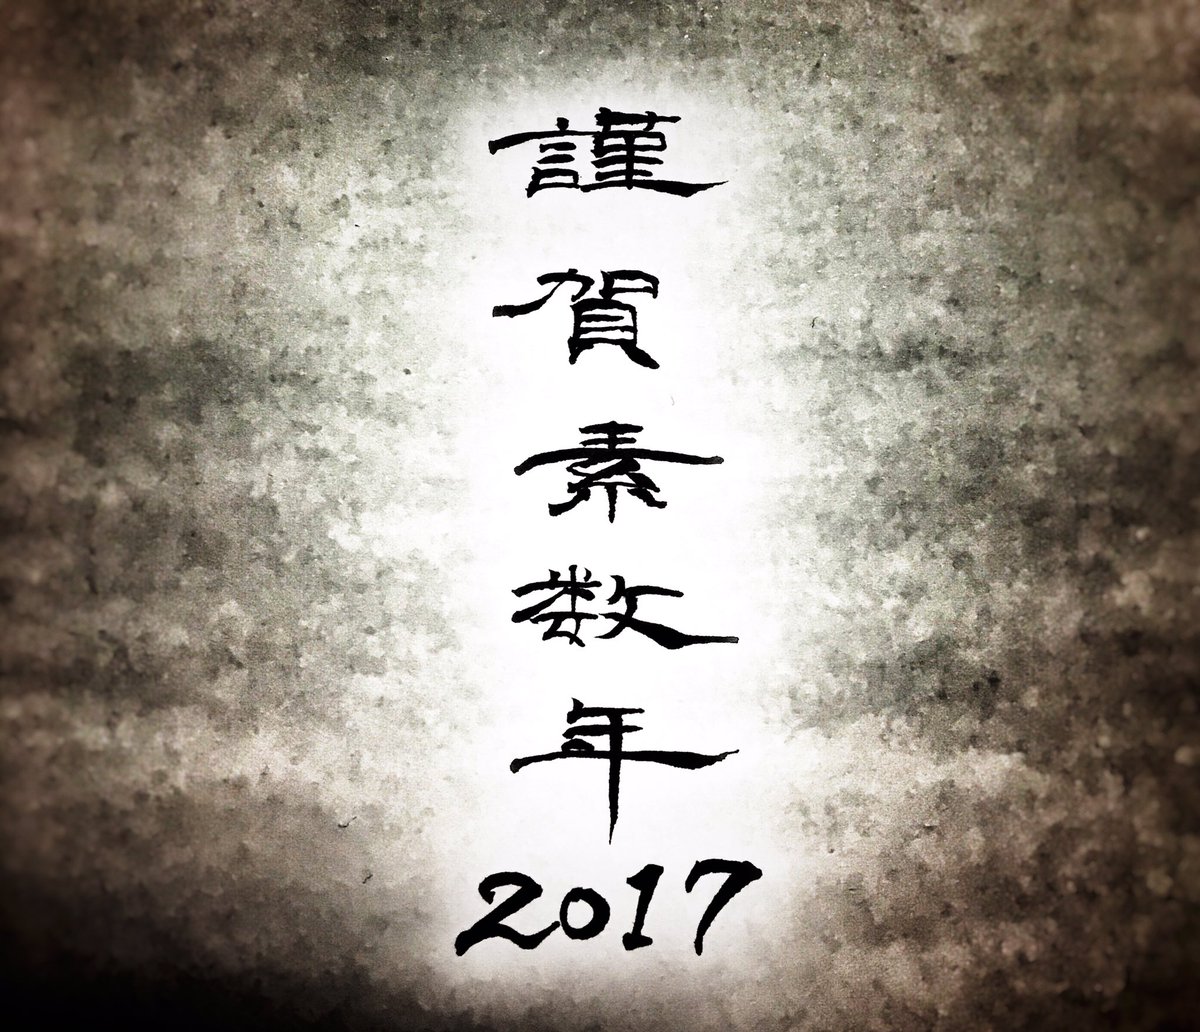 謹賀素数年
2017